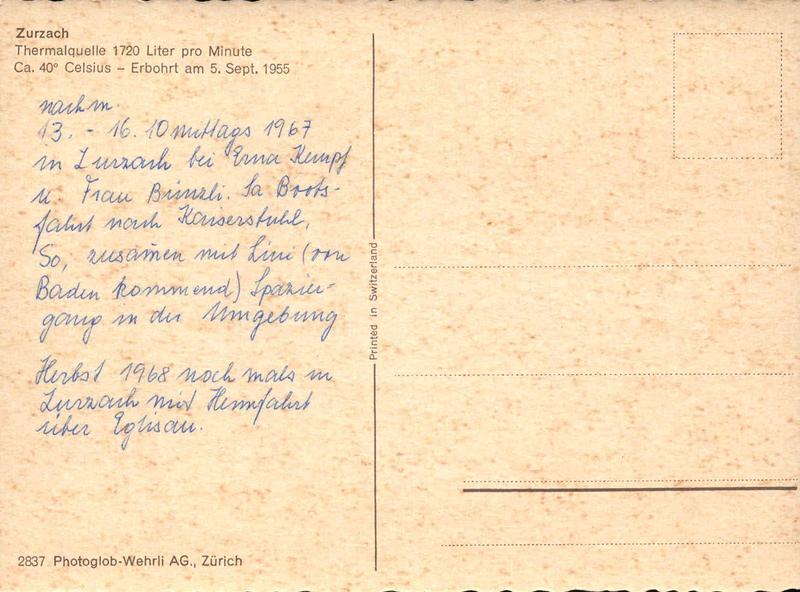 Zurzach
Thermalquelle 1720 Liter pro Minute
Ca. 40° Celsius – Erbohrt am 5. Sept. 1955
nachm.
13. - 16. 10 mittags 1967
in Zurzach bei Erna Kempf
u. Frau Bünzli. Sa Boots-
fahrt nach Kaiserstuhl,
So, zusammen mit Lini (von
Baden kommend) Spazier-
gang in der Umgebung
Herbst 1968 nochmals in
Zurzach mit Heimfahrt
über Eglisau.
Printed in Switzerland
2837 Photoglob-Wehrli AG., Zürich